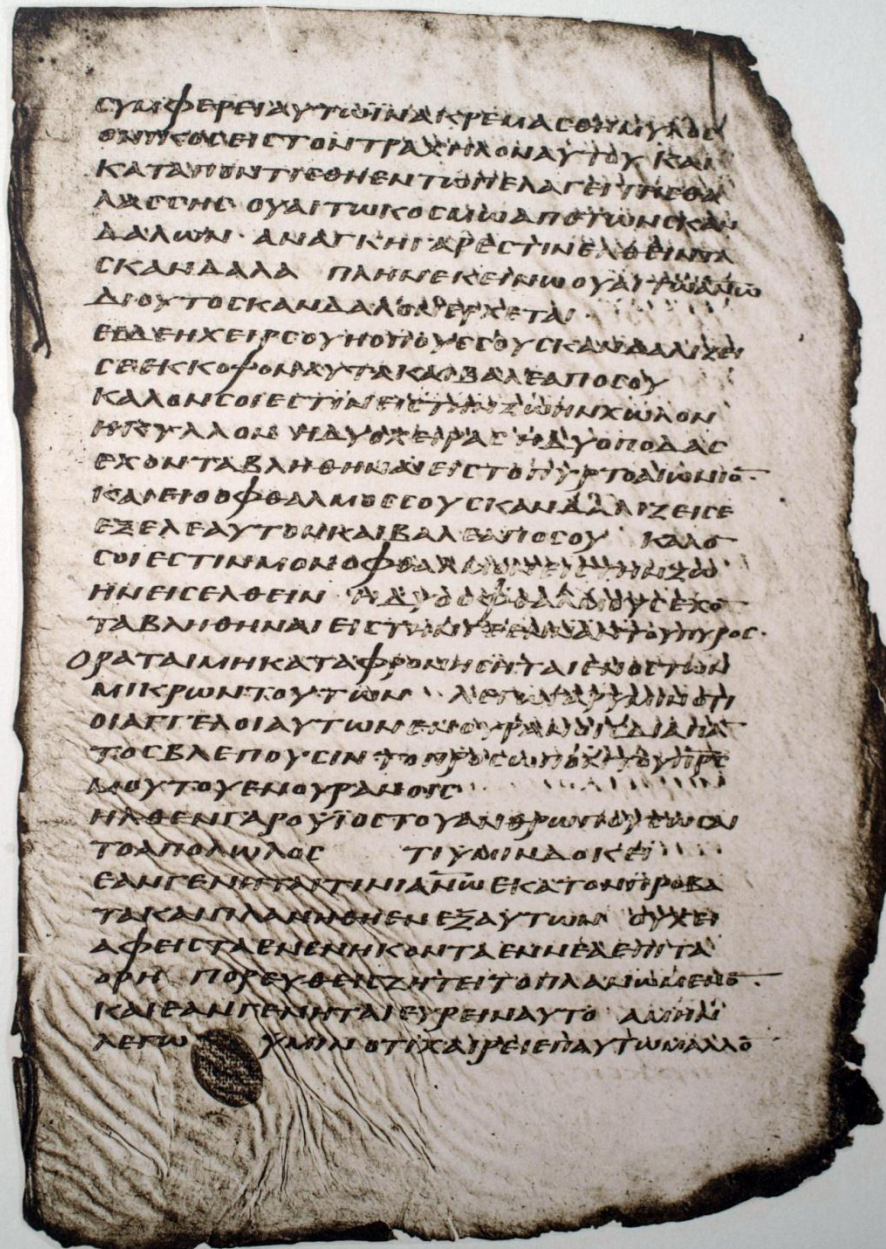 ϹΥΜΦΕΡΕΙΑΥΤΩΪΝΑΚΡΕΜΑϹΘΗΜΥΛΟϹ
ΟΝΙΚΟϹΕΙϹΤΟΝΤΡΑΧΗΛΟΝΑΥΤΟΥ ΚΑΙ
ΚΑΤΑΠΟΝΤΙϹΘΗΕΝΤΩΠΕΛΑΓΕΙΤΗϹΘΑ
ΛΑϹϹΗϹ · ΟΥΑΙΤΩΚΟϹΜΩΑΠΟΤΩΝϹΚΑΝ
ΔΑΛΩΝ · ΑΝΑΓΚΗΓΑΡΕϹΤΙΝΕΛΘΕΙΝΤΑ
ϹΚΑΝΔΑΛΑ ΠΛΗΝΕΚΕΙΝΩΟΥΑΙΤΩΑΝΩ
ΔΙΟΥΤΟϹΚΑΝΔΑΛΟΝΕΡΧΕΤΑΙ
ΕΙΔΕΗΧΕΙΡϹΟΥΗΟΠΟΥϹϹΟΥϹΚΑΝΔΑΛΙΖΕΙ
ϹΕΕΚΚΟΨΟΝΑΥΤΑΚΑΙΒΑΛΕΑΠΟϹΟΥ
ΚΑΛΟΝϹΟΙΕϹΤΙΝΕΙϹΤΗΝΖΩΗΝΧΩΛΟΝ
ΗΚΥΛΛΟΝ ΗΔΥΟΧΕΙΡΑϹ ΗΔΥΟΠΟΔΑϹ
ΕΧΟΝΤΑΒΛΗΘΗΝΑΙΕΙϹΤΟΠΥΡΤΟΑΙΩΝΙΟ̅ ·
ΚΑΙΕΙΟΟΦΘΑΛΜΟϹϹΟΥϹΚΑΝΔΑΛΙΖΕΙϹΕ
ΕΞΕΛΕΑΥΤΟΝΚΑΙΒΑΛΕΑΠΟϹΟΥ ΚΑΛΟ̅
ϹΟΙΕϹΤΙΝΜΟΝΟΦΘΑΛΜΟΝΕΙϹΤΗΝΖΩ
ΗΝΕΙϹΕΛΘΕΙΝ ΗΔΥΟΟΦΘΑΛΜΟΥϹΕΧΟ̅
ΤΑΒΛΗΘΗΝΑΙΕΙϹΤΗΝΓΕΕΝΝΑΝΤΟΥΠΥΡΟϹ ·
ΟΡΑΤΑΙΜΗΚΑΤΑΦΡΟΝΗϹΗΤΑΙΕΝΟϹΤΩΝ
ΜΙΚΡΩΝΤΟΥΤΩΝ ΛΕΓΩΓΑΡΥΜΙΝΟΤΙ
ΟΙΑΓΓΕΛΟΙΑΥΤΩΝΕΝΟΥΡΑΝΟΙϹΔΙΑΠΑ̅
ΤΟϹΒΛΕΠΟΥϹΙΝΤΟΠΡΟϹΩΠΟΝΤΟΥΠΡϹ
ΜΟΥΤΟΥΕΝΟΥΡΑΝΟΙϹ
ΗΛΘΕΝΓΑΡΟΥΪΟϹΤΟΥΑΝΘΡΩΠΟΥϹΩϹΑΙ
ΤΟΑΠΟΛΩΛΟϹ ΤΙΥΜΙΝΔΟΚΕΙ
ΕΑΝΓΕΝΗΤΑΙΤΙΝΙΑΝ̅Ω̅ΕΚΑΤΟΝΠΡΟΒΑ
ΤΑΚΑΙΠΛΑΝΗΘΗΕΝΕΞΑΥΤΩΝ ΟΥΧΕΙ
ΑΦΕΙϹΤΑΕΝΕΝΗΚΟΝΤΑΕΝΝΕΑΕΠΙΤΑ
ΟΡΗ ΠΟΡΕΥΘΕΙϹΖΗΤΕΙΤΟΠΛΑΝΩΜΕΝΟ̅ ·
ΚΑΙΕΑΝΓΕΝΗΤΑΙΕΥΡΕΙΝΑΥΤΟ ΑΜΗΝ
ΛΕΓΩ ΥΜΙΝΟΤΙΧΑΙΡΕΙΕΠΑΥΤΩΜΑΛΛΟ̅